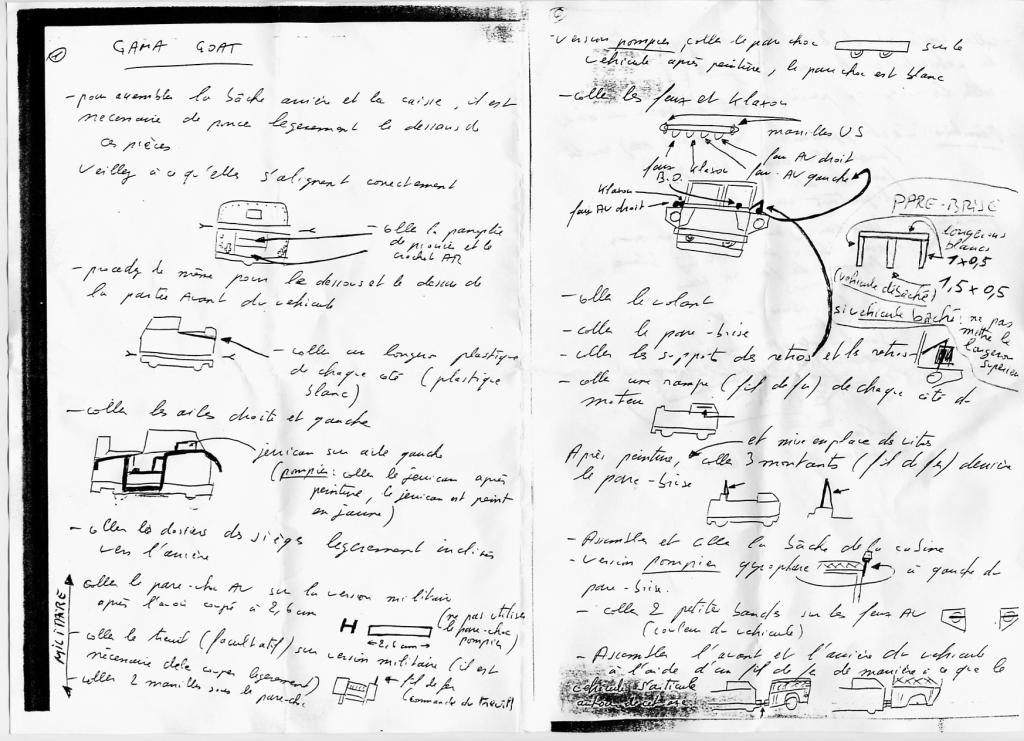 1
GAMA GOAT
- pour assembler la bâche arrière et la caisse, il est
nécessaire de poncer legerement le dessous de
ces pièces
Veillez à ce qu'elles s'alignent correctement
- coller la panoplie
de pionnier et le
crochet AR
- procedez de même pour le dessous et le dessus de
la partie Avant du vehicule
- coller un longeron plastique
de chaque coté (plastique
blanc)
- coller les ailes droite et gauche
jerrican sur aile gauche
(pompier: coller le jerrican après
peinture, le jerrican est peint
en jaune)
- coller les dossiers des sièges legerement inclinés
vers l'arrière
MILITAIRE
coller le pare-choc AV sur la version militaire
après l'avoir coupé à 2,6 cm
H
2,6 cm
(ne pas utiliser
le pare-choc
pompier)
- coller le treuil (facultatif) sur version militaire (il est
nécessaire de le couper legerement)
- coller 2 manilles sous le pare-choc
fil de fer
(commande du treuil)
2
- Version pompier, coller le pare choc
sur le
vehicule après peinture, le pare choc est blanc
- coller les feux et Klaxon
manilles US
feux
B.O.
Klaxon
feu AV droit
feu AV gauche
Klaxon
feu AV droit
PARE-BRISE
longerons
blancs
1 x 0,5
(vehicule débâché)
1,5 x 0,5
si vehicule bâché: ne pas
mettre le
longeron
superieur
- coller le volant
- coller le pare-brise
- coller les supports des retros et les retros
- coller une rampe (fil de fer) de chaque côté du
moteur
et mise en place des vitres
Après peinture, coller 3 montants (fil de fer) derrière
le pare-brise
- Assembler et coller la bâche de la cabine
- Version pompier gyrophare
à gauche du
pare-brise.
- coller 2 petites bandes sur les feux AV
(couleur du vehicule)
- Assembler l'avant et l'arrière du vehicule
à l'aide d'un fil de fer de manière à ce que le
vehicule s'articule
autour de cet axe